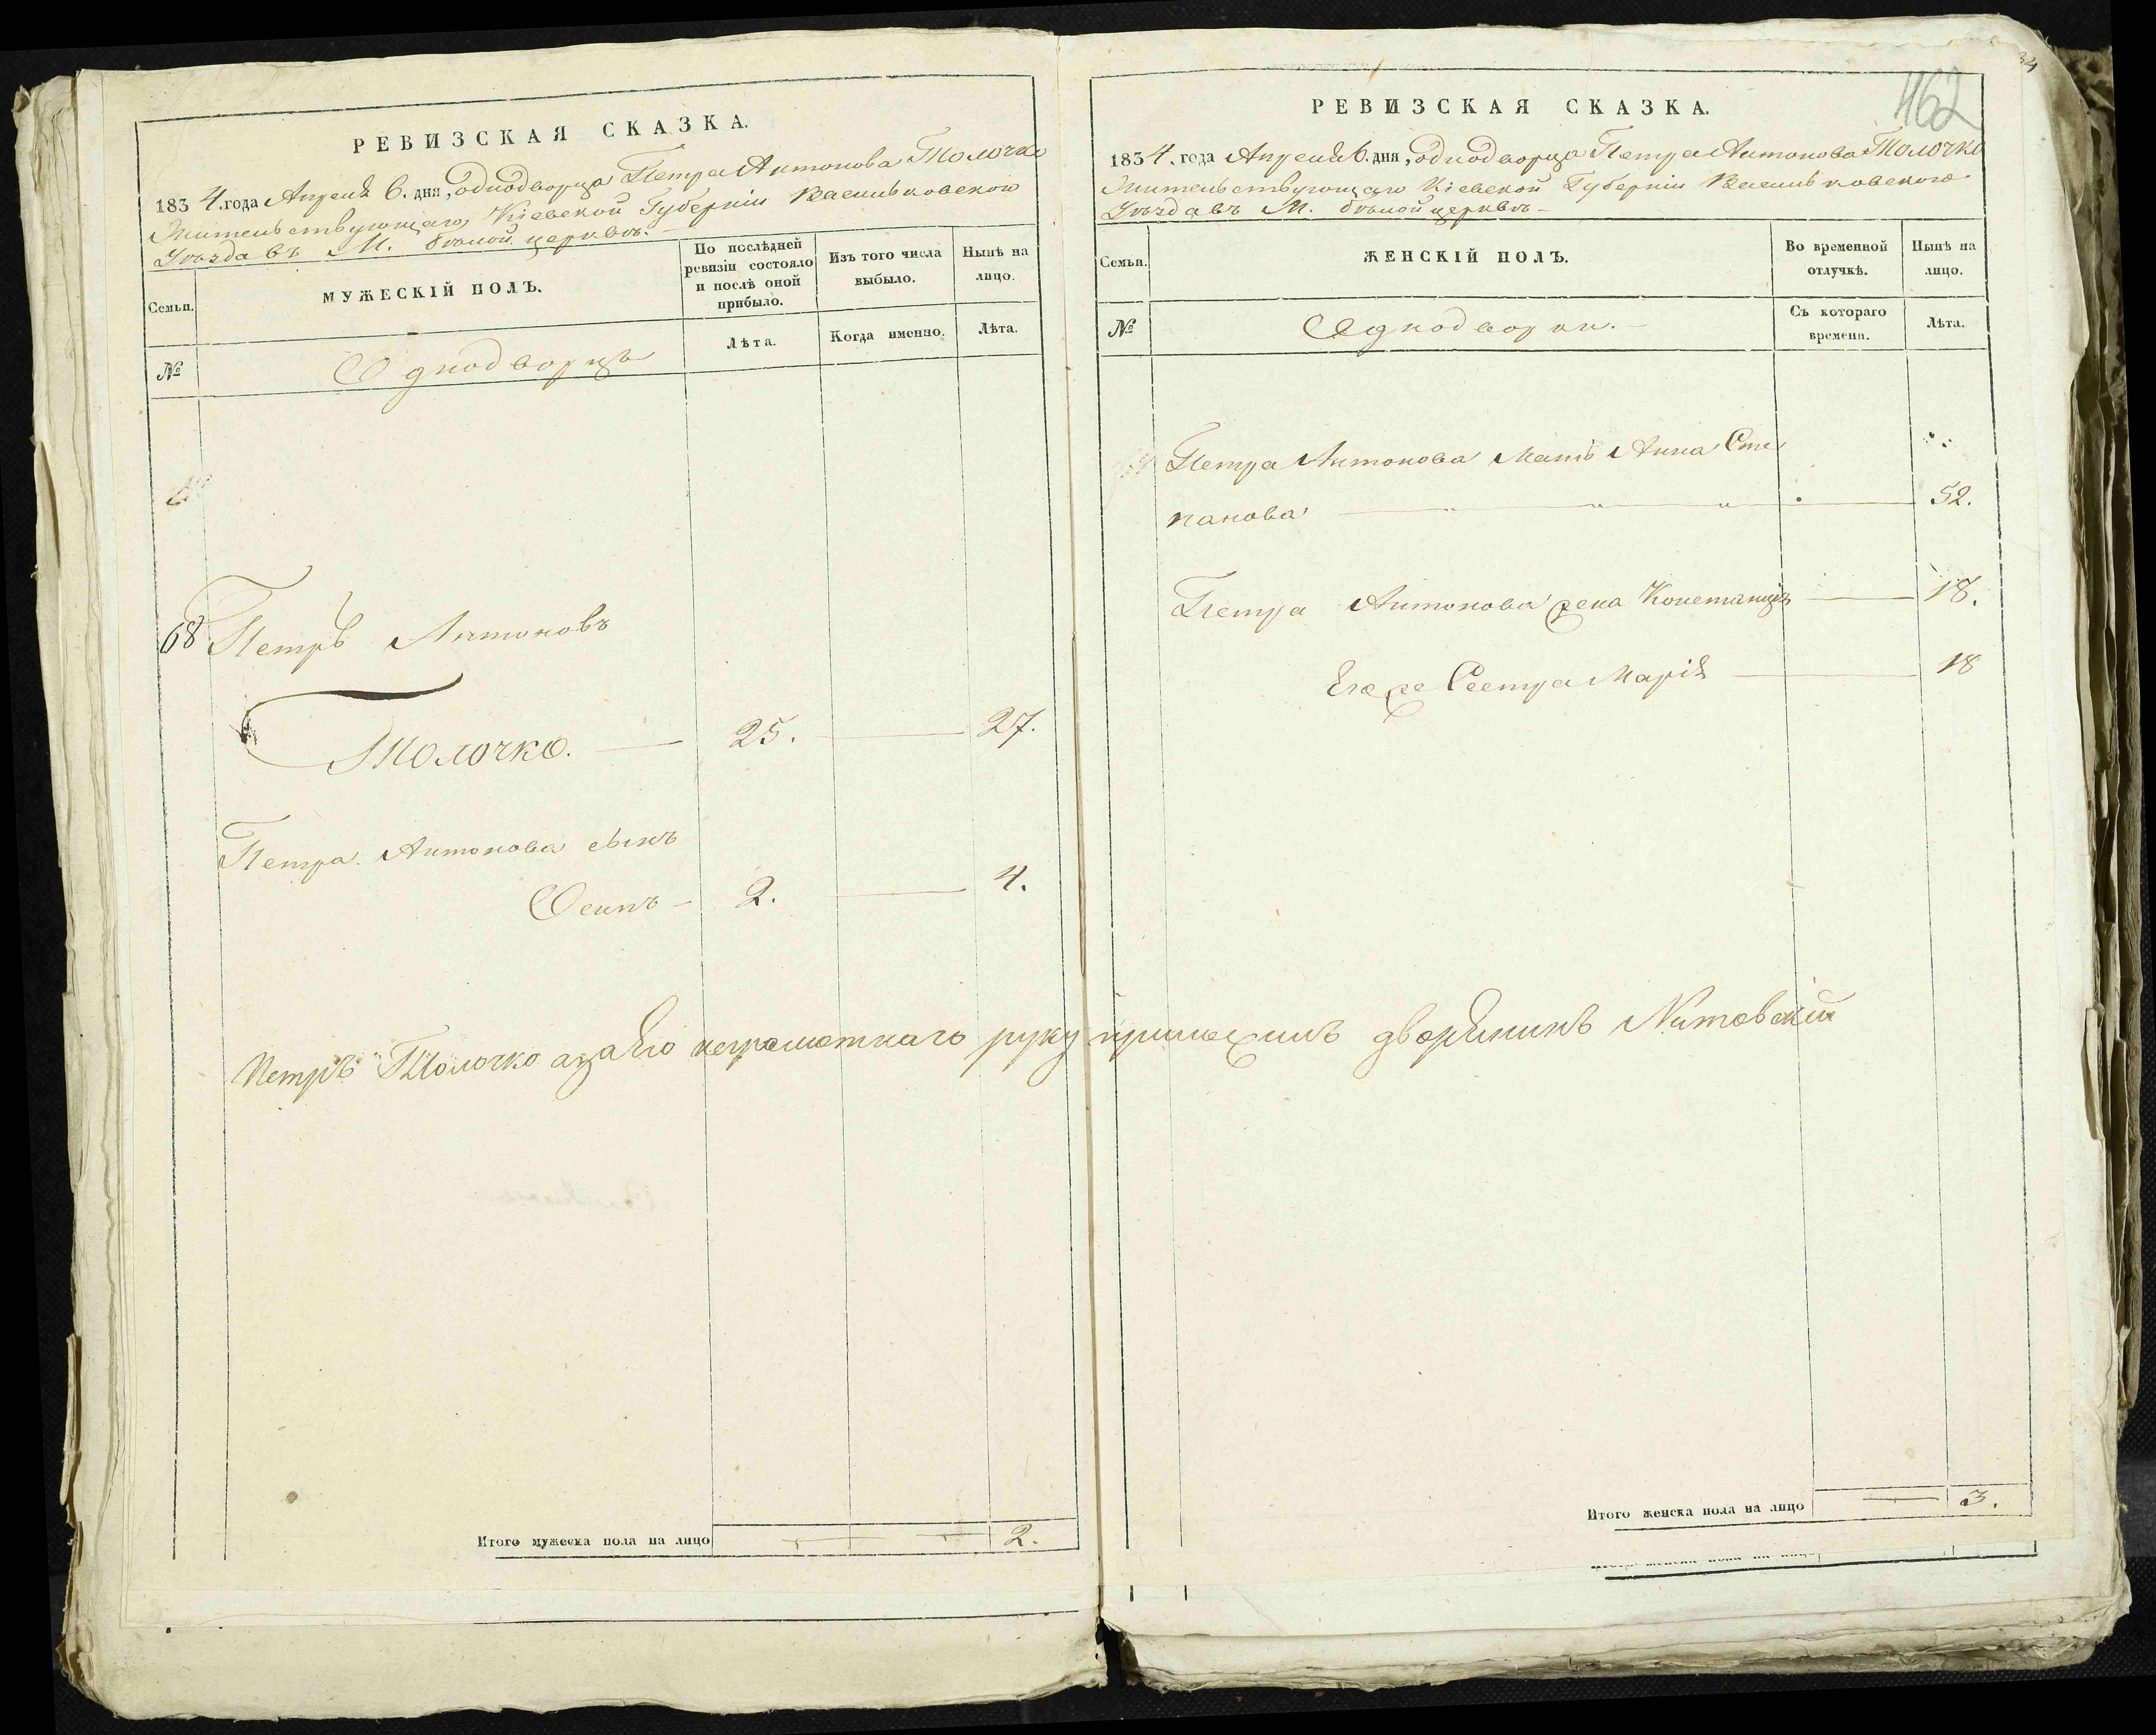 РЕВИЗСКАЯ СКАЗКА.
1834. года Апреля 6. дня, однодворца Петра Антонова Толочко
Жительствующаго Кіевской Губерніи Васильковского
Уѣзда въ М. бѣлой церквѣ.
Семьи.
МУЖЕСКІЙ ПОЛЪ.
По послѣдней
ревизіи состояло
и послѣ оной
прибыло.
Изъ того числа
выбыло.
Нынѣ на
лицо.
№
Однодворцы
Лѣта.
Когда именно.
Лѣта.
68 Петръ Антоновъ
Толочко. — 25. — 27.
Петра Антонова сынъ
Осипъ — 2. — 4.
Петръ Толочко а за его неграмотнаго руку
Итого мужеска пола на лицо — — 2.
34
462
РЕВИЗСКАЯ СКАЗКА.
1834. года Апреля 6. дня, однодворца Петра Антонова Толочко
Жительствующаго Кіевской Губерніи Васильковского
Уѣзда въ М. бѣлой церквѣ —
Семьи.
ЖЕНСКІЙ ПОЛЪ.
Во временной
отлучкѣ.
Нынѣ на
лицо.
№
Однодворки. —
Съ котораго
времени.
Лѣта.
Петра Антонова Мать Анна Сте
панова — 52.
Петра Антонова жена Констанція — 18.
Его же Сестра Марія — 18
приложилъ дворянинъ
Итого женска пола на лицо — 3.